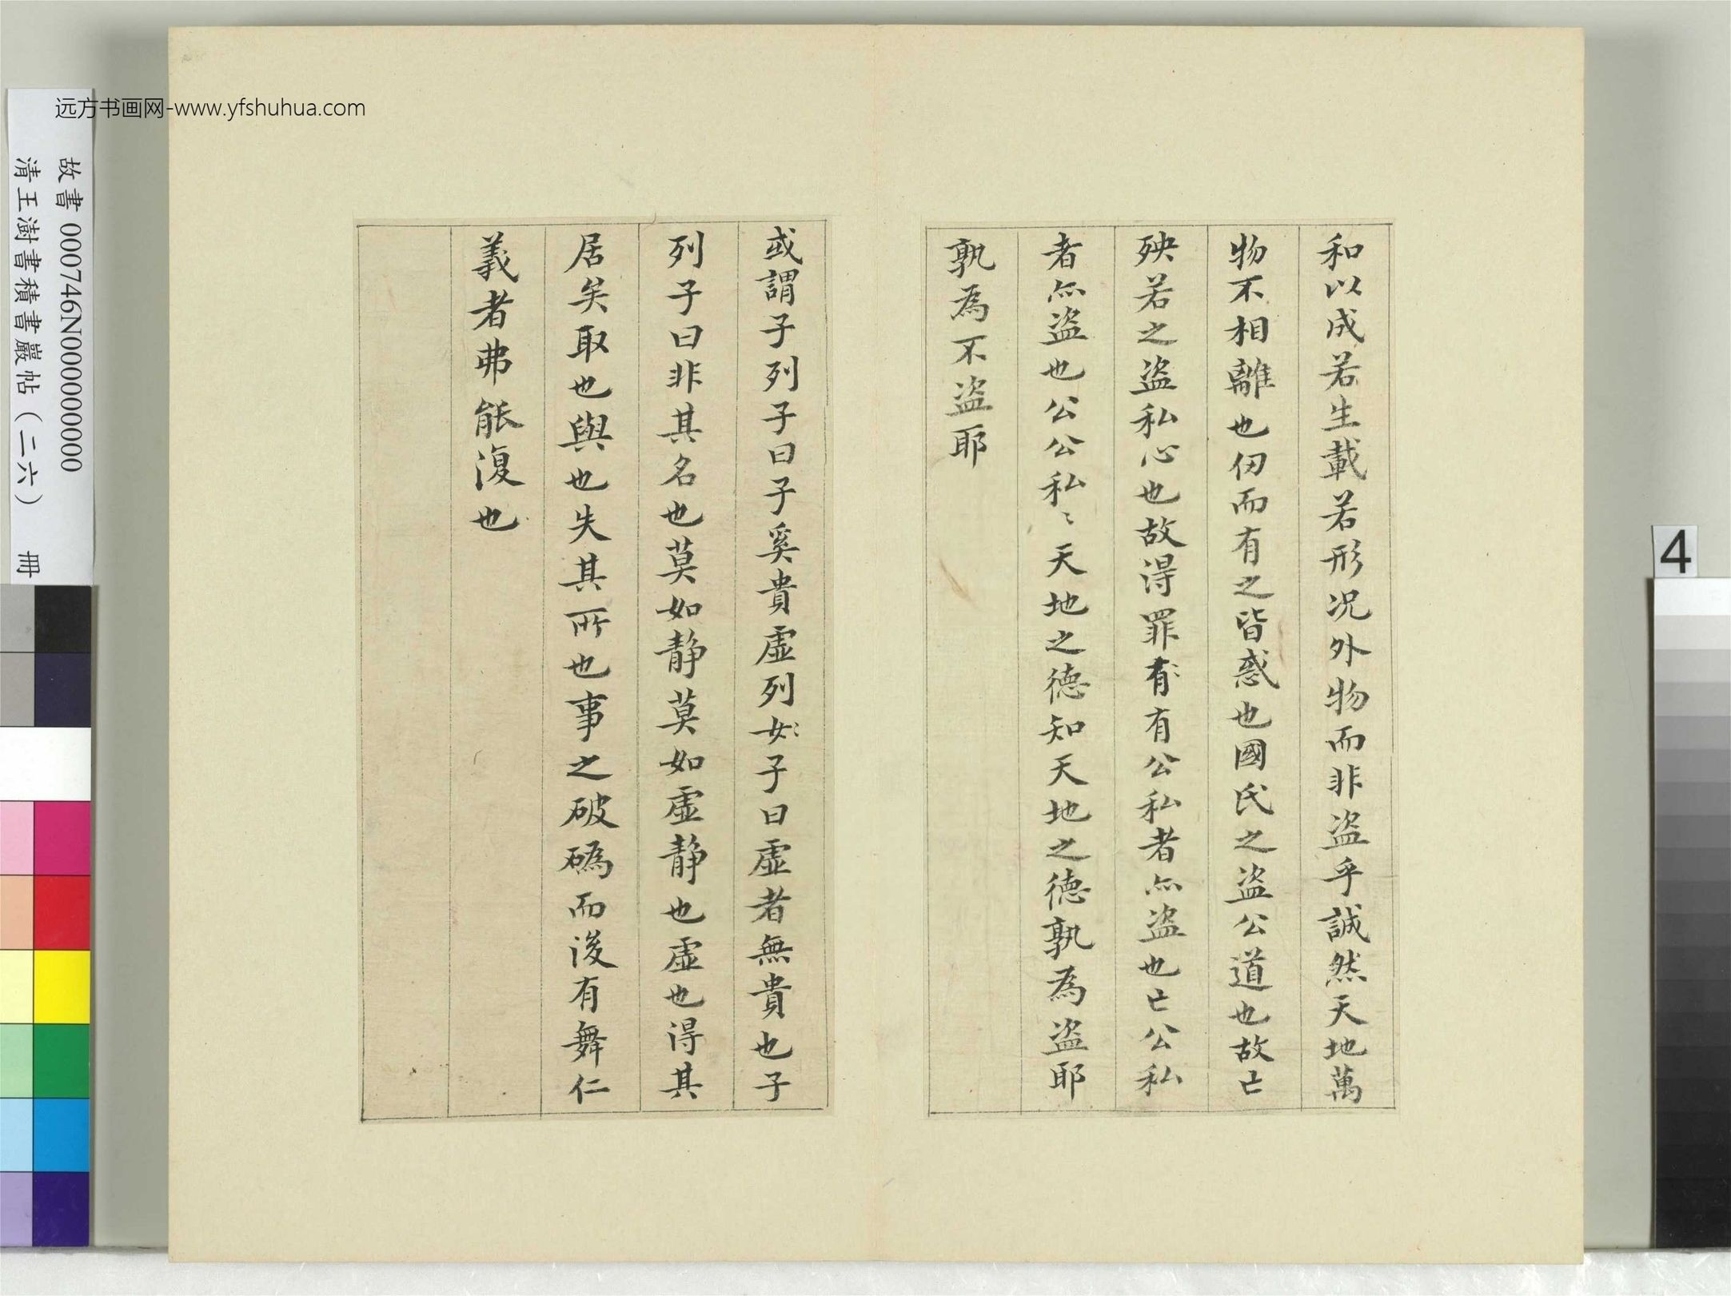 和以成若生載若形况外物而非盗乎誠然天地萬
物不相離也仞而有之皆惑也國氏之盗公道也故亡
殃若之盗私心也故得罪有有公私者亦盗也亡公私
者亦盗也公公私々天地之德知天地之德孰為盗耶
孰為不盗耶
或謂子列子曰子奚貴虛列女子曰虛者無貴也子
列子曰非其名也莫如静莫如虛静也虛也得其
居矣取也與也失其所也事之破䃣而後有舞仁
義者弗能復也
远方书画网-www.yfshuhua.com
故書 000746N000000000
清王澍書積書巖帖（二六） 冊
4